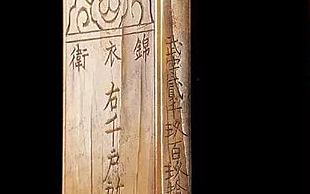 錦衣衛
右千戶所
武字貳千玖百玖拾